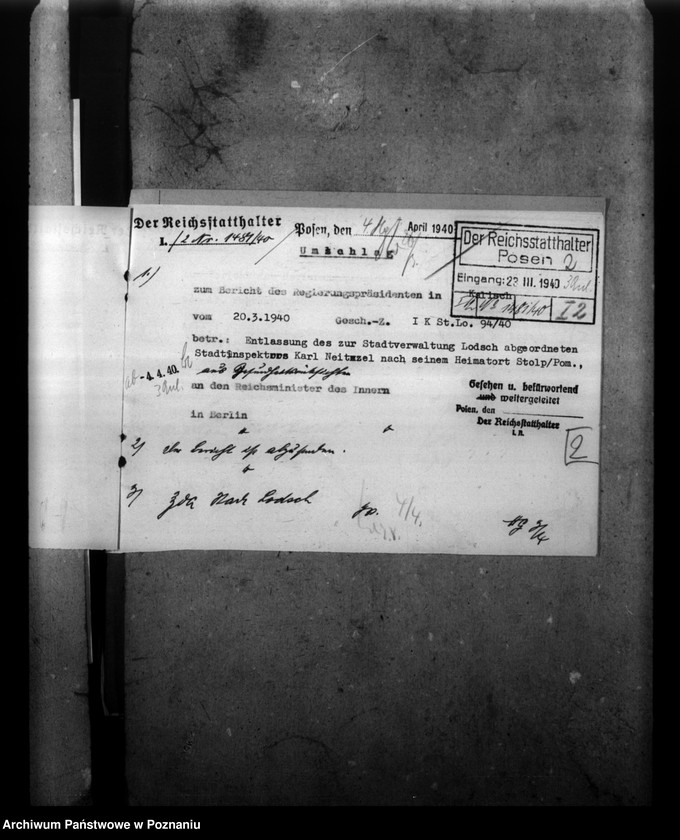 Der Reichsstatthalter
I./2 Nr. 1481/40
Posen, den 4. April 1940
Umschlag
Der Reichsstatthalter
Posen 2
Eingang: 23 III. 1940 3 Anl.
1481/40 I 2
1.)
zum Bericht des Regierungspräsidenten in
Kalisch
vom 20.3.1940 Gesch.-Z. I K St.Lo. 94/40
betr.: Entlassung des zur Stadtverwaltung Lodsch abgeordneten
Stadtinspektors Karl Neitzel nach seinem Heimatort Stolp/Pom.,
aus Gesundheitsrücksichten
ab - 4. 4. 40.
3 Anl.
an den Reichsminister des Innern
in Berlin
Gesehen u. befürwortend
und weitergeleitet
Posen, den
Der Reichsstatthalter
I. A.
2
2) Der Bericht ist abzusenden.
3) ZdA Stadt Lodsch
4/4.
Archiwum Państwowe w Poznaniu